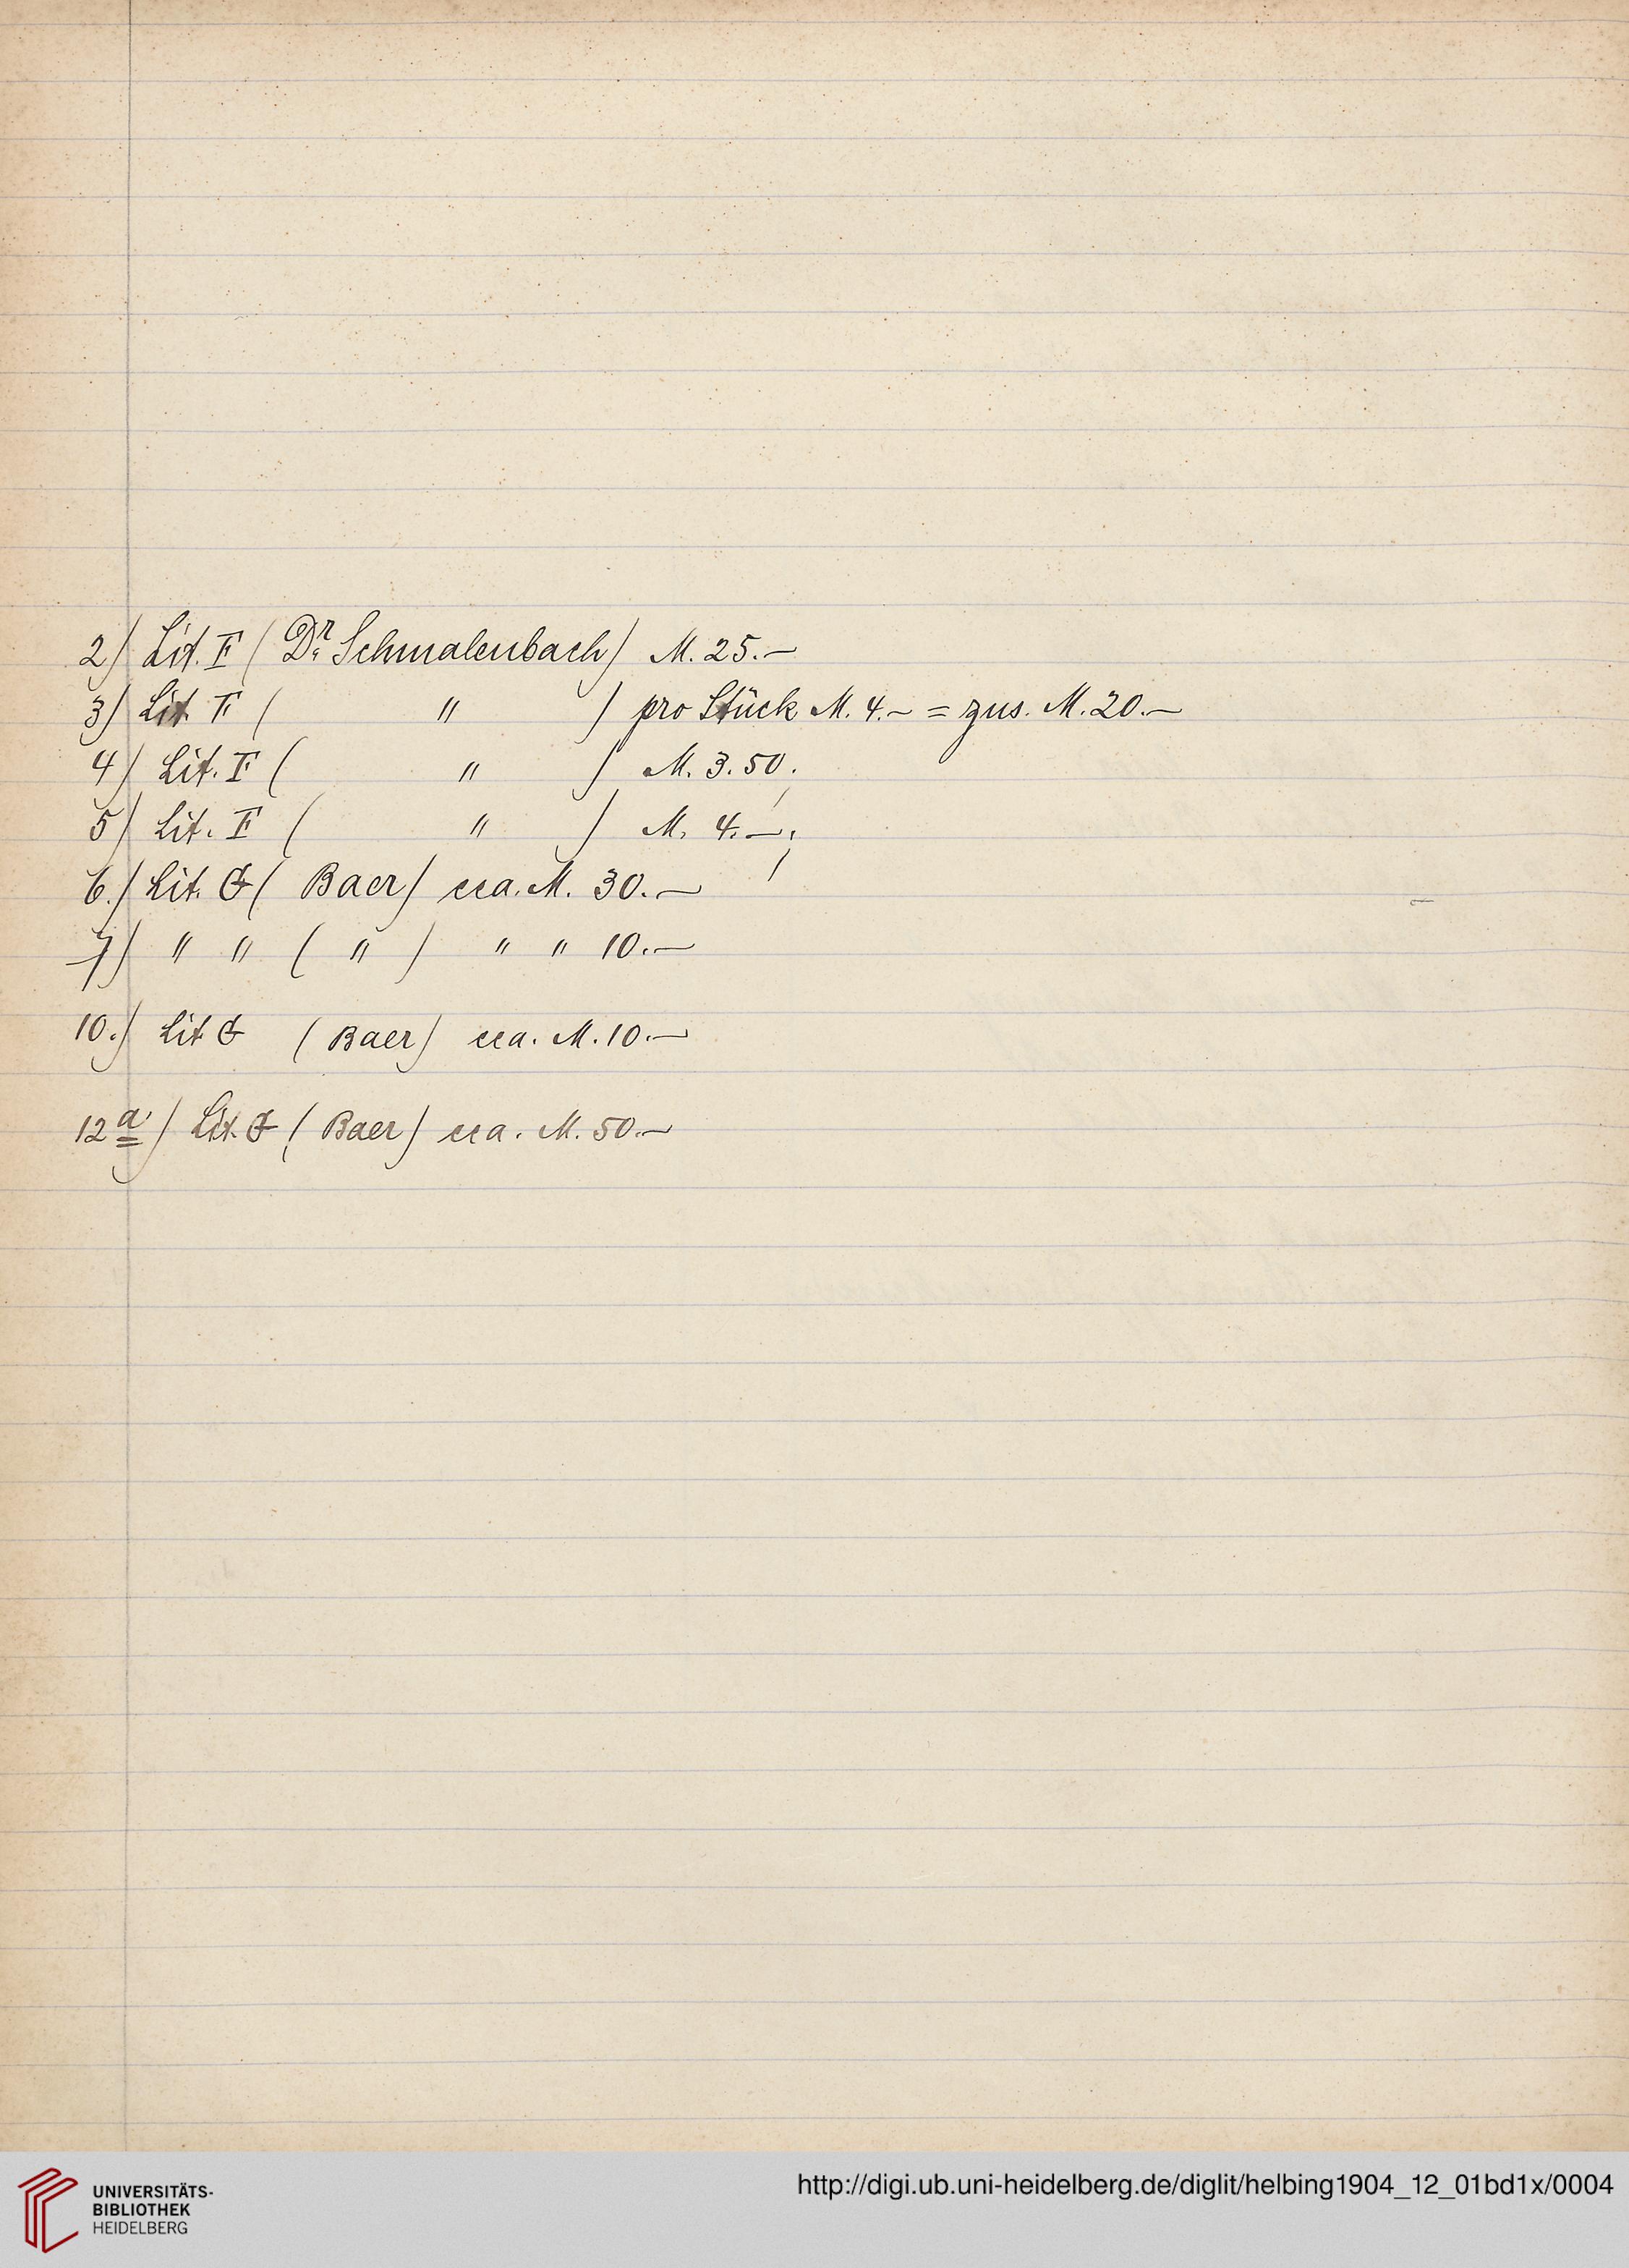 2) Lit. F (Dr. Schmalenbach) M. 25.—
3) Lit. F ( " ) pro Stück M. 4.— = zus. M. 20.—
4) Lit. F ( " ) M. 3.50.
5) Lit. F ( " ) M. 4.—.
6.) Lit. G ( Baer) cca. M. 30.—
7) " " ( " ) " " 10.—
10.) Lit G (Baer) cca. M. 10.—
12a) Lit. G (Baer) cca. M. 50.—
UNIVERSITÄTS-
BIBLIOTHEK
HEIDELBERG
http://digi.ub.uni-heidelberg.de/diglit/helbing1904_12_01bd1x/0004